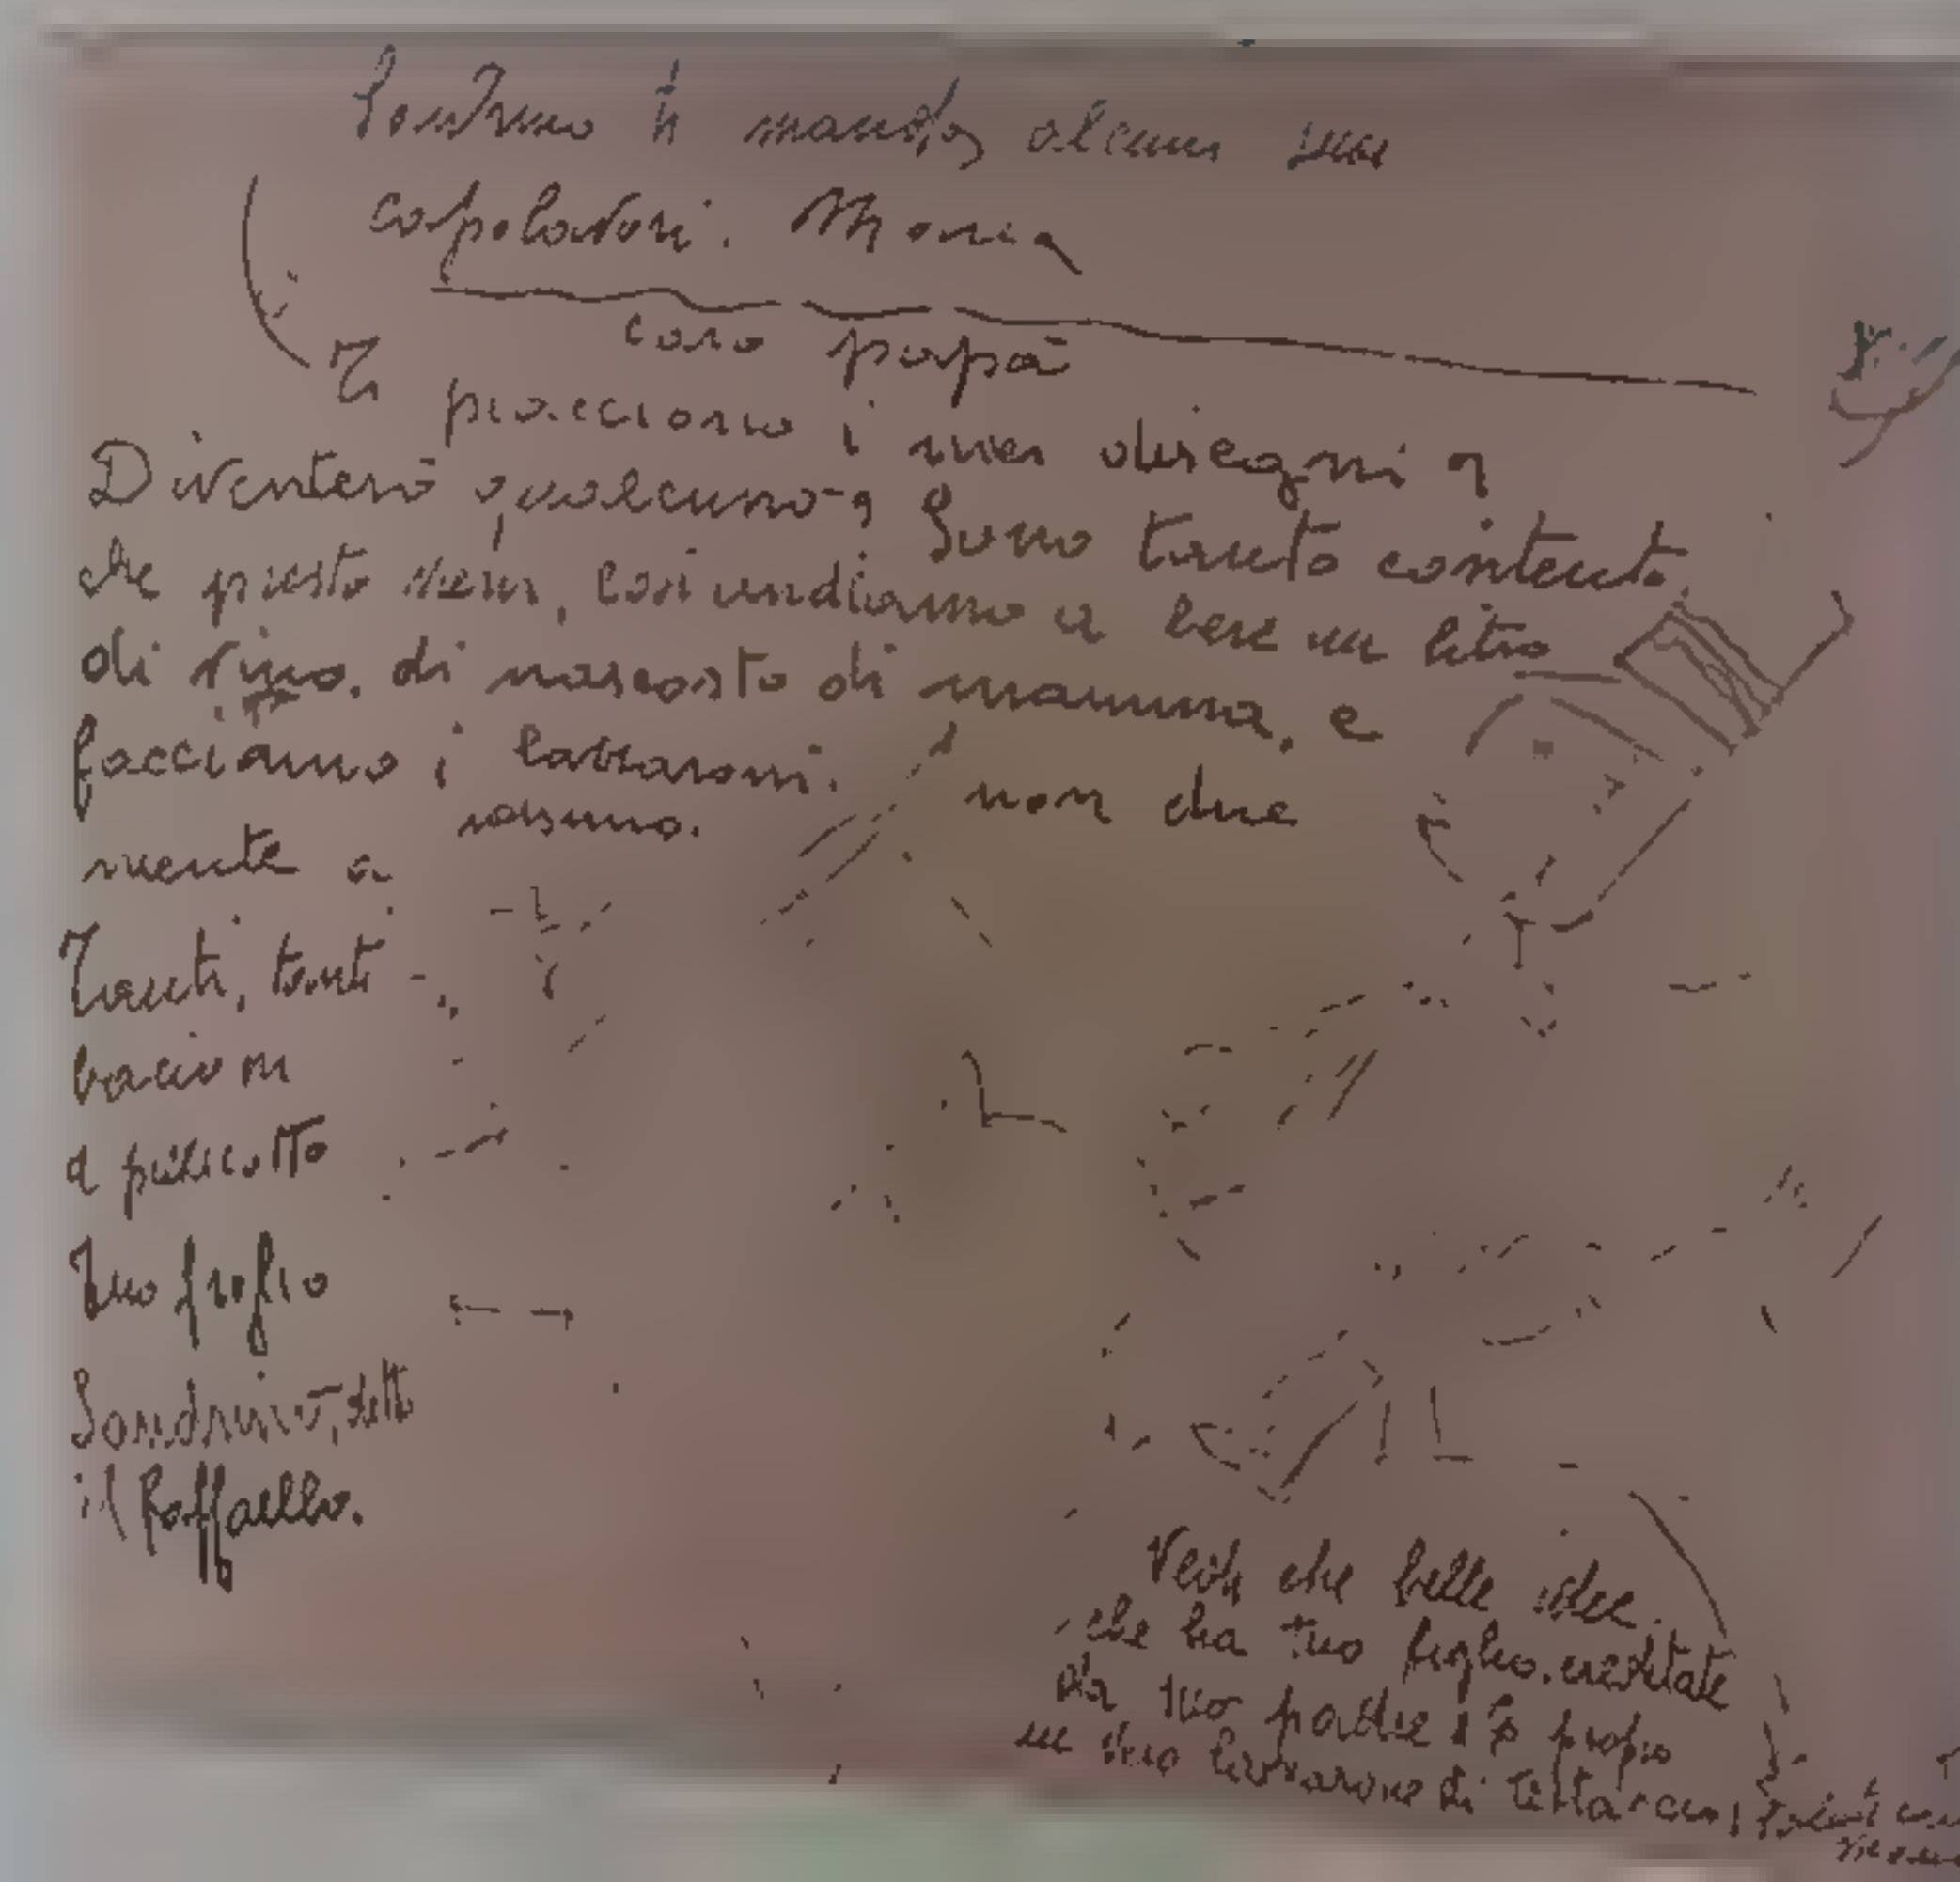 Sandrino ti manda alcuni suoi
capolavori. Maria
caro papà
Ti piacciono i miei disegni?
Diventerò qualcuno? Sono tanto contento
che presto vieni, così andiamo a bere un litro
di vino, di nascosto di mamma, e
facciamo i lazzaroni. non dire
niente a nessuno.
Tanti, tanti
bacioni
a pizzicotto
Tuo figlio
Sandrino, detto
il Raffaello.
Vedi che belle idee
che ha tuo figlio. ereditate
da tuo padre